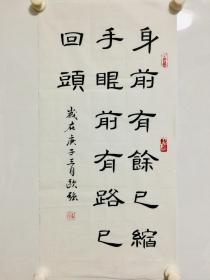 身前有餘已縮
手眼前有路已
回頭
歲在庚子三月歐強